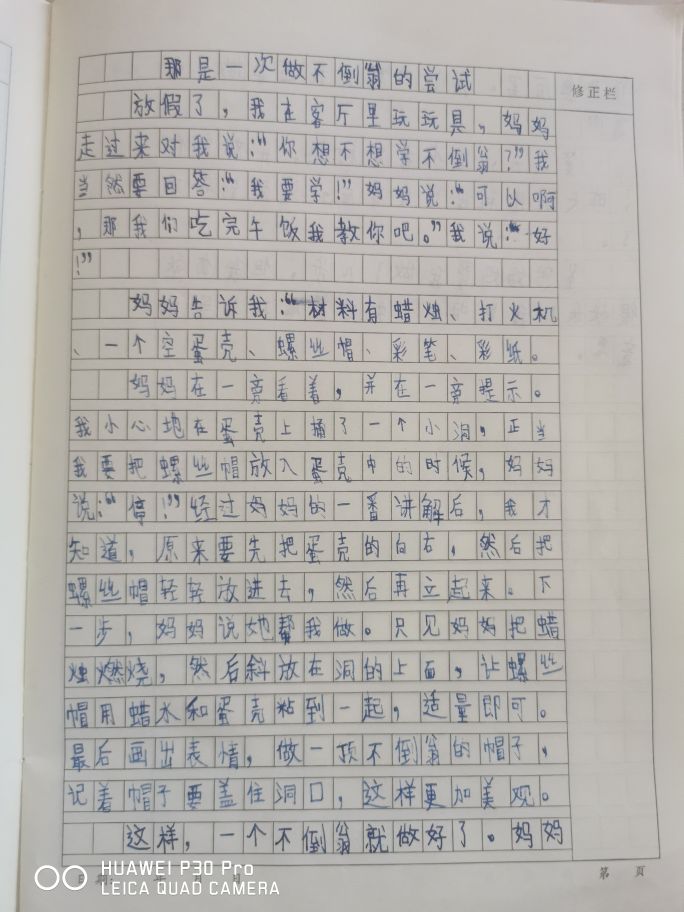 那是一次做不倒翁的尝试
修正栏
放假了，我在客厅里玩玩具，妈妈
走过来对我说：“你想不想学不倒翁？”我
当然要回答：“我要学！”妈妈说：“可以啊
，那我们吃完午饭我教你吧。”我说：“好
！”
妈妈告诉我：“材料有蜡烛、打火机
、一个空蛋壳、螺丝帽、彩笔、彩纸。
妈妈在一旁看着，并在一旁提示。
我小心地在蛋壳上捅了一个小洞，正当
我要把螺丝帽放入蛋壳中的时候，妈妈
说：“停！”经过妈妈的一番讲解后，我才
知道，原来要先把蛋壳的白右，然后把
螺丝帽轻轻放进去，然后再立起来。下
一步，妈妈说她帮我做。只见妈妈把蜡
烛燃烧，然后斜放在洞的上面，让螺丝
帽用蜡水和蛋壳粘到一起，适量即可。
最后画出表情，做一顶不倒翁的帽子，
记着帽子要盖住洞口，这样更加美观。
这样，一个不倒翁就做好了。妈妈
日期： 年 月 日
第 页
HUAWEI P30 Pro
LEICA QUAD CAMERA